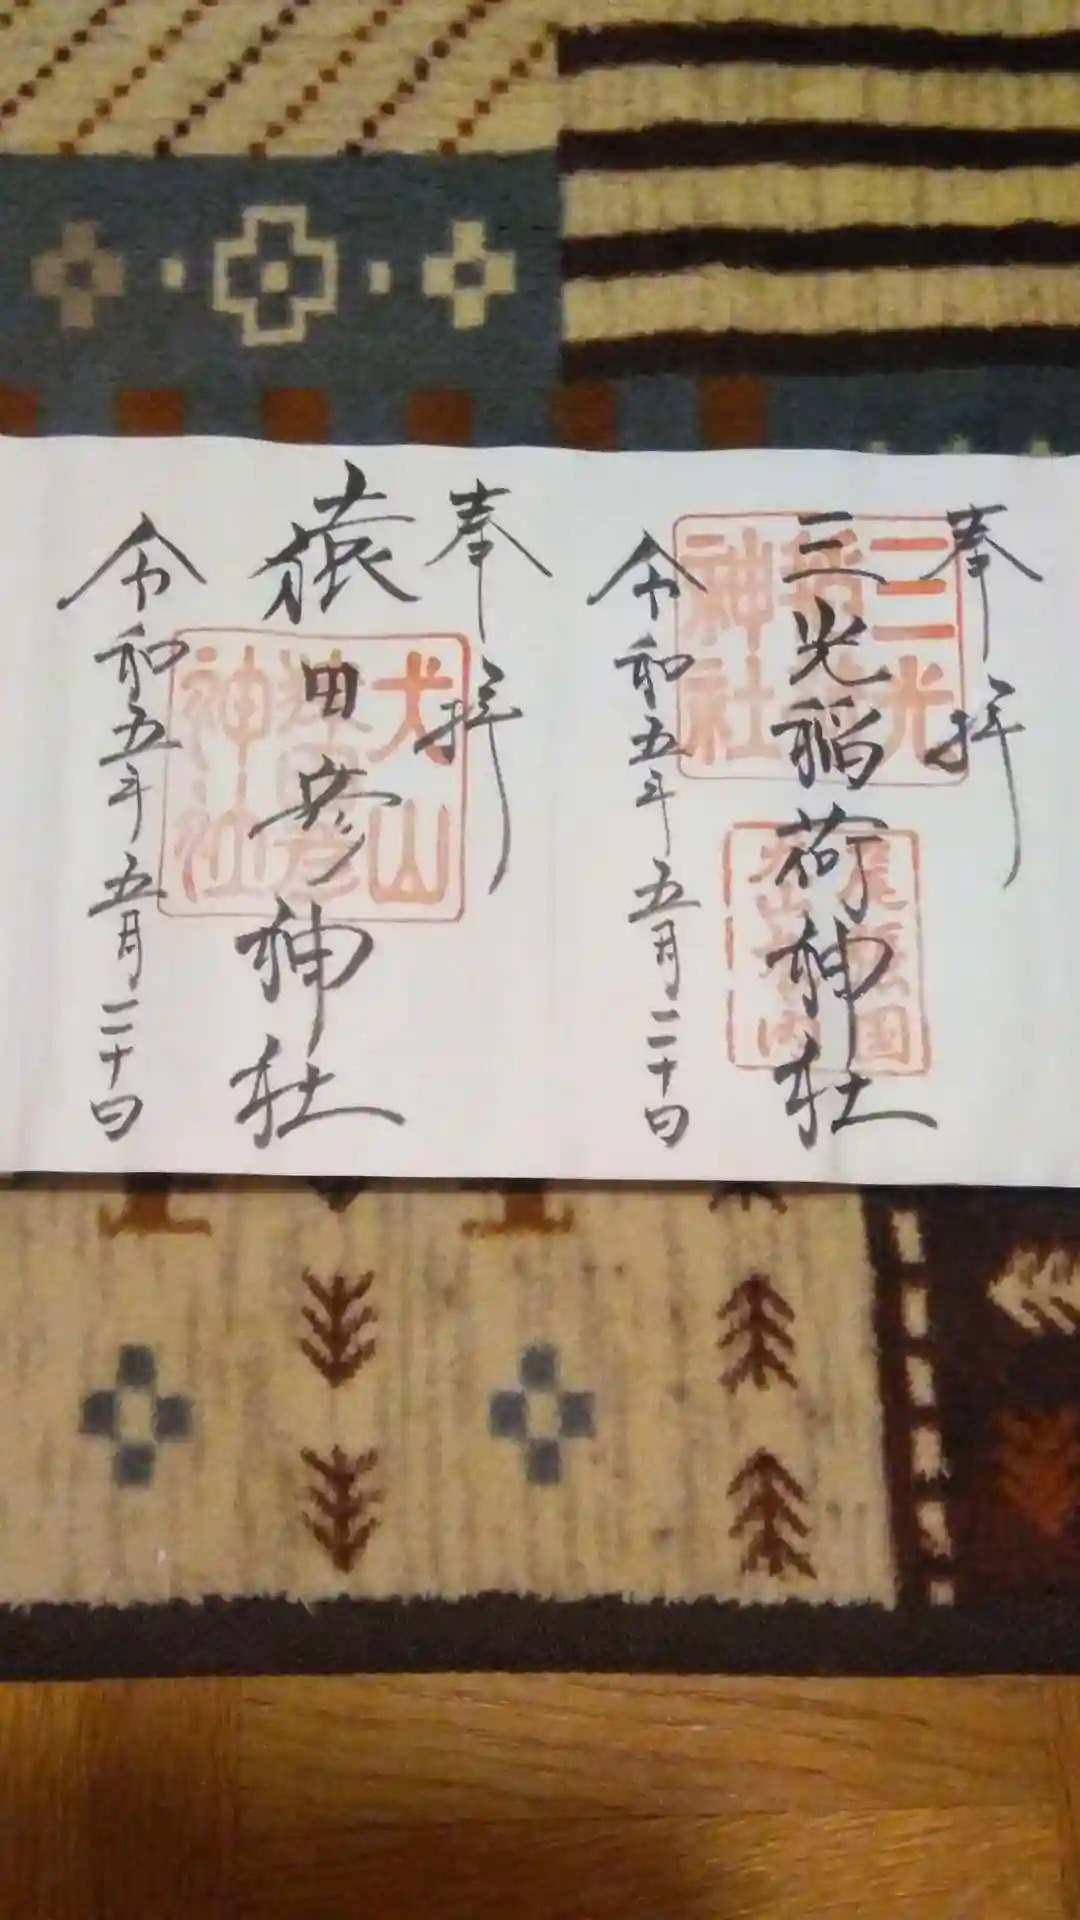 奉拝
三光稲荷神社
令和五年五月二十日
三光
稲荷
神社
尾張国
犬山城内
奉拝
猿田彦神社
令和五年五月二十日
犬山
猿田彦
神社